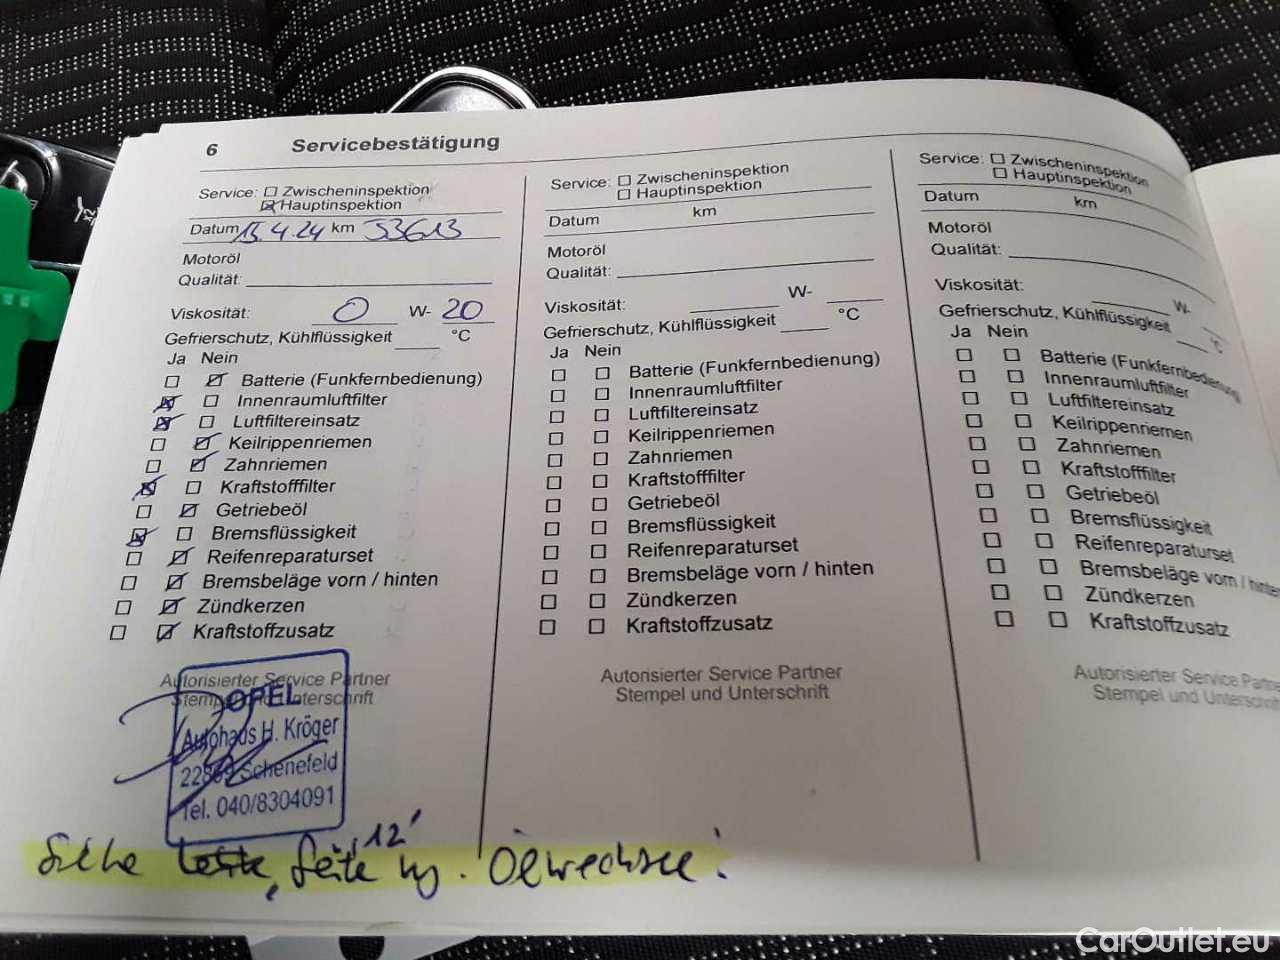 6 Servicebestätigung
Service: ☐ Zwischeninspektion
☒ Hauptinspektion
Datum 15.4.24 km 53613
Motoröl
Qualität:
Viskosität: 0 W- 20
Gefrierschutz, Kühlflüssigkeit °C
Ja Nein
Batterie (Funkfernbedienung)
Innenraumluftfilter
Luftfiltereinsatz
Keilrippenriemen
Zahnriemen
Kraftstofffilter
Getriebeöl
Bremsflüssigkeit
Reifenreparaturset
Bremsbeläge vorn / hinten
Zündkerzen
Kraftstoffzusatz
Autorisierter Service Partner
Stempel und Unterschrift
OPEL
Autohaus H. Kröger
22869 Schenefeld
Tel. 040/8304091
Siehe letzte Seite "12" wg. Ölwechsel!
Service: ☐ Zwischeninspektion
☐ Hauptinspektion
Datum km
Motoröl
Qualität:
Viskosität: W-
Gefrierschutz, Kühlflüssigkeit °C
Ja Nein
Batterie (Funkfernbedienung)
Innenraumluftfilter
Luftfiltereinsatz
Keilrippenriemen
Zahnriemen
Kraftstofffilter
Getriebeöl
Bremsflüssigkeit
Reifenreparaturset
Bremsbeläge vorn / hinten
Zündkerzen
Kraftstoffzusatz
Autorisierter Service Partner
Stempel und Unterschrift
Service: ☐ Zwischeninspektion
☐ Hauptinspektion
Datum km
Motoröl
Qualität:
Viskosität: W-
Gefrierschutz, Kühlflüssigkeit °C
Ja Nein
Batterie (Funkfernbedienung)
Innenraumluftfilter
Luftfiltereinsatz
Keilrippenriemen
Zahnriemen
Kraftstofffilter
Getriebeöl
Bremsflüssigkeit
Reifenreparaturset
Bremsbeläge vorn / hinten
Zündkerzen
Kraftstoffzusatz
Autorisierter Service Partne
Stempel und Unterschrift
CarOutlet.eu